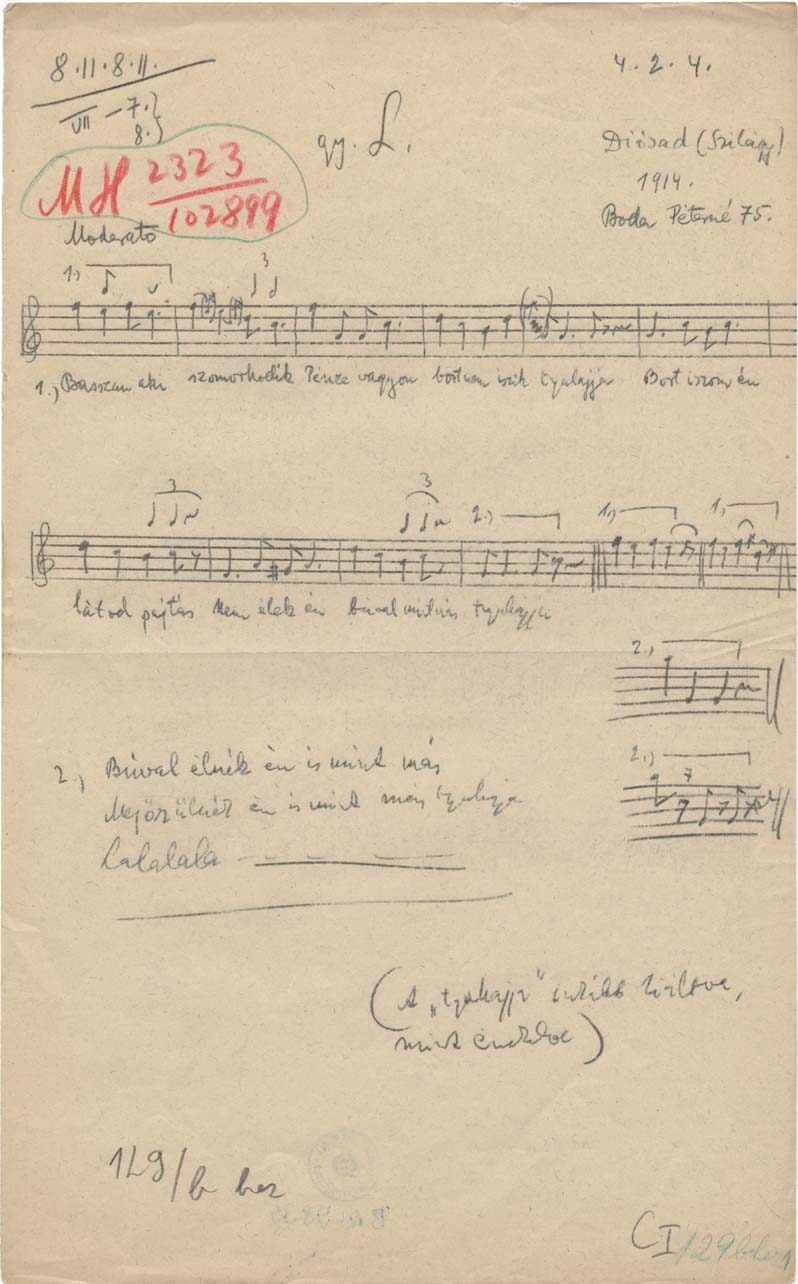 8.11.8.11.
4.2.4.
VII – 7.}
8.}
gy. L.
Diósad (Szilágy)
1914.
Boda Péterné 75.
MH 2323
102899
Moderato
1.) 3
1.) Basszam aki szomorkodik Pénze vagyon bort nem iszik tyuhajja Bort iszom én
3 3 2.) 1.) 1.)
látod pajtás Nem élek én búval mint más tyuhajja
2.)
2.)
2.) Búval élnék én is mint más
én is mint más tyuhajja
Lalalala
(A „tyuhajja" inkább kiáltva,
mint énekelve)
129/b hez
CI 129b-hez